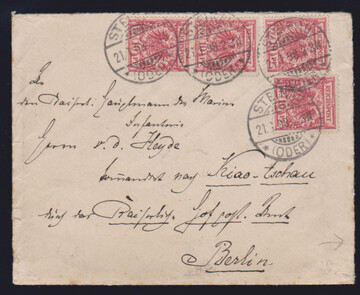 STE
(ODER)
21.
An
den Kaiserl. Hauptmann der Marine
Infanterie
Herrn v. d. Heyde
kommandiert nach Kiao-tschau
durch das Kaiserlich. Hof post. Amt
Berlin